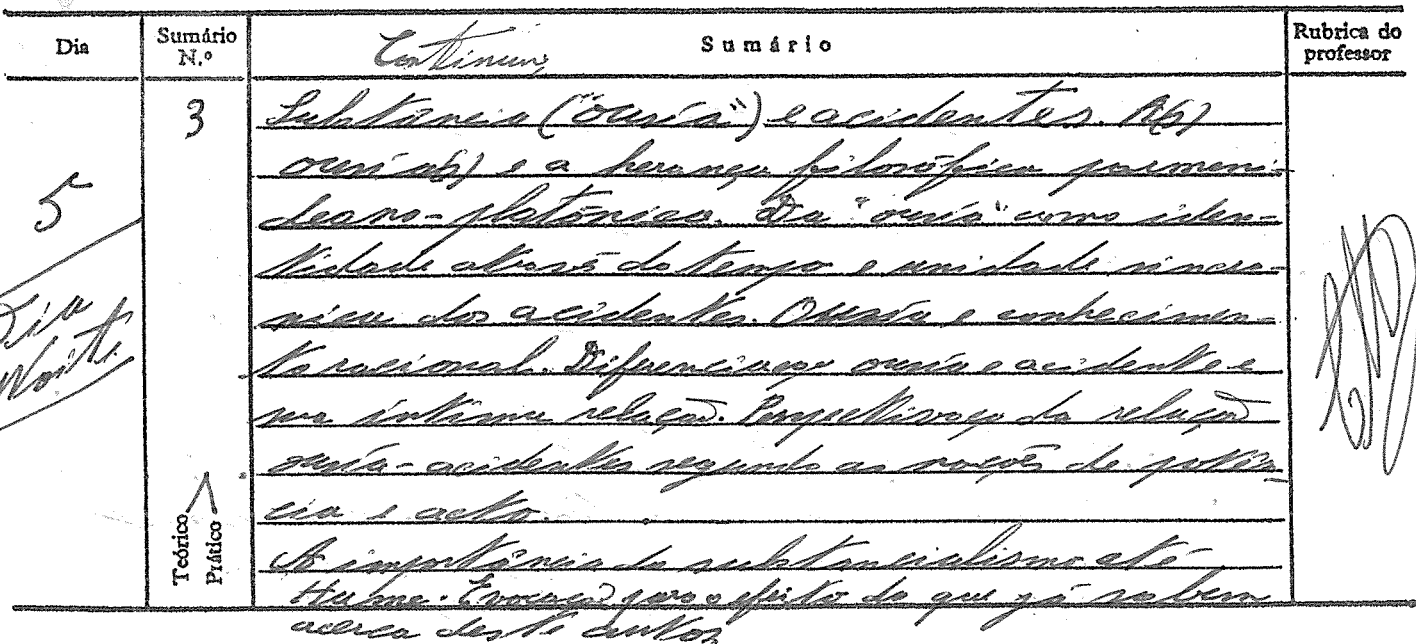 Dia
Sumário N.º
Sumário
Rubrica do professor
Continuação
5
Dia
Noite
3
Teórico
Prático
Substância ("ousía") e acidentes. A(s)
ousía(s) e a herança filosófica parmeni-
deano-platónica. Da "ousía" como iden-
tidade através do tempo e unidade sincró-
nica dos acidentes. Ousía e conhecimen-
to racional. Diferenciação ousía e acidente e
sua íntima relação. Perspetivação da relação
ousía-acidentes segundo as noções de potên-
cia e acto.
A importância do substancialismo até
Hume. Evocação para o efeito do que já sabem
acerca deste autor